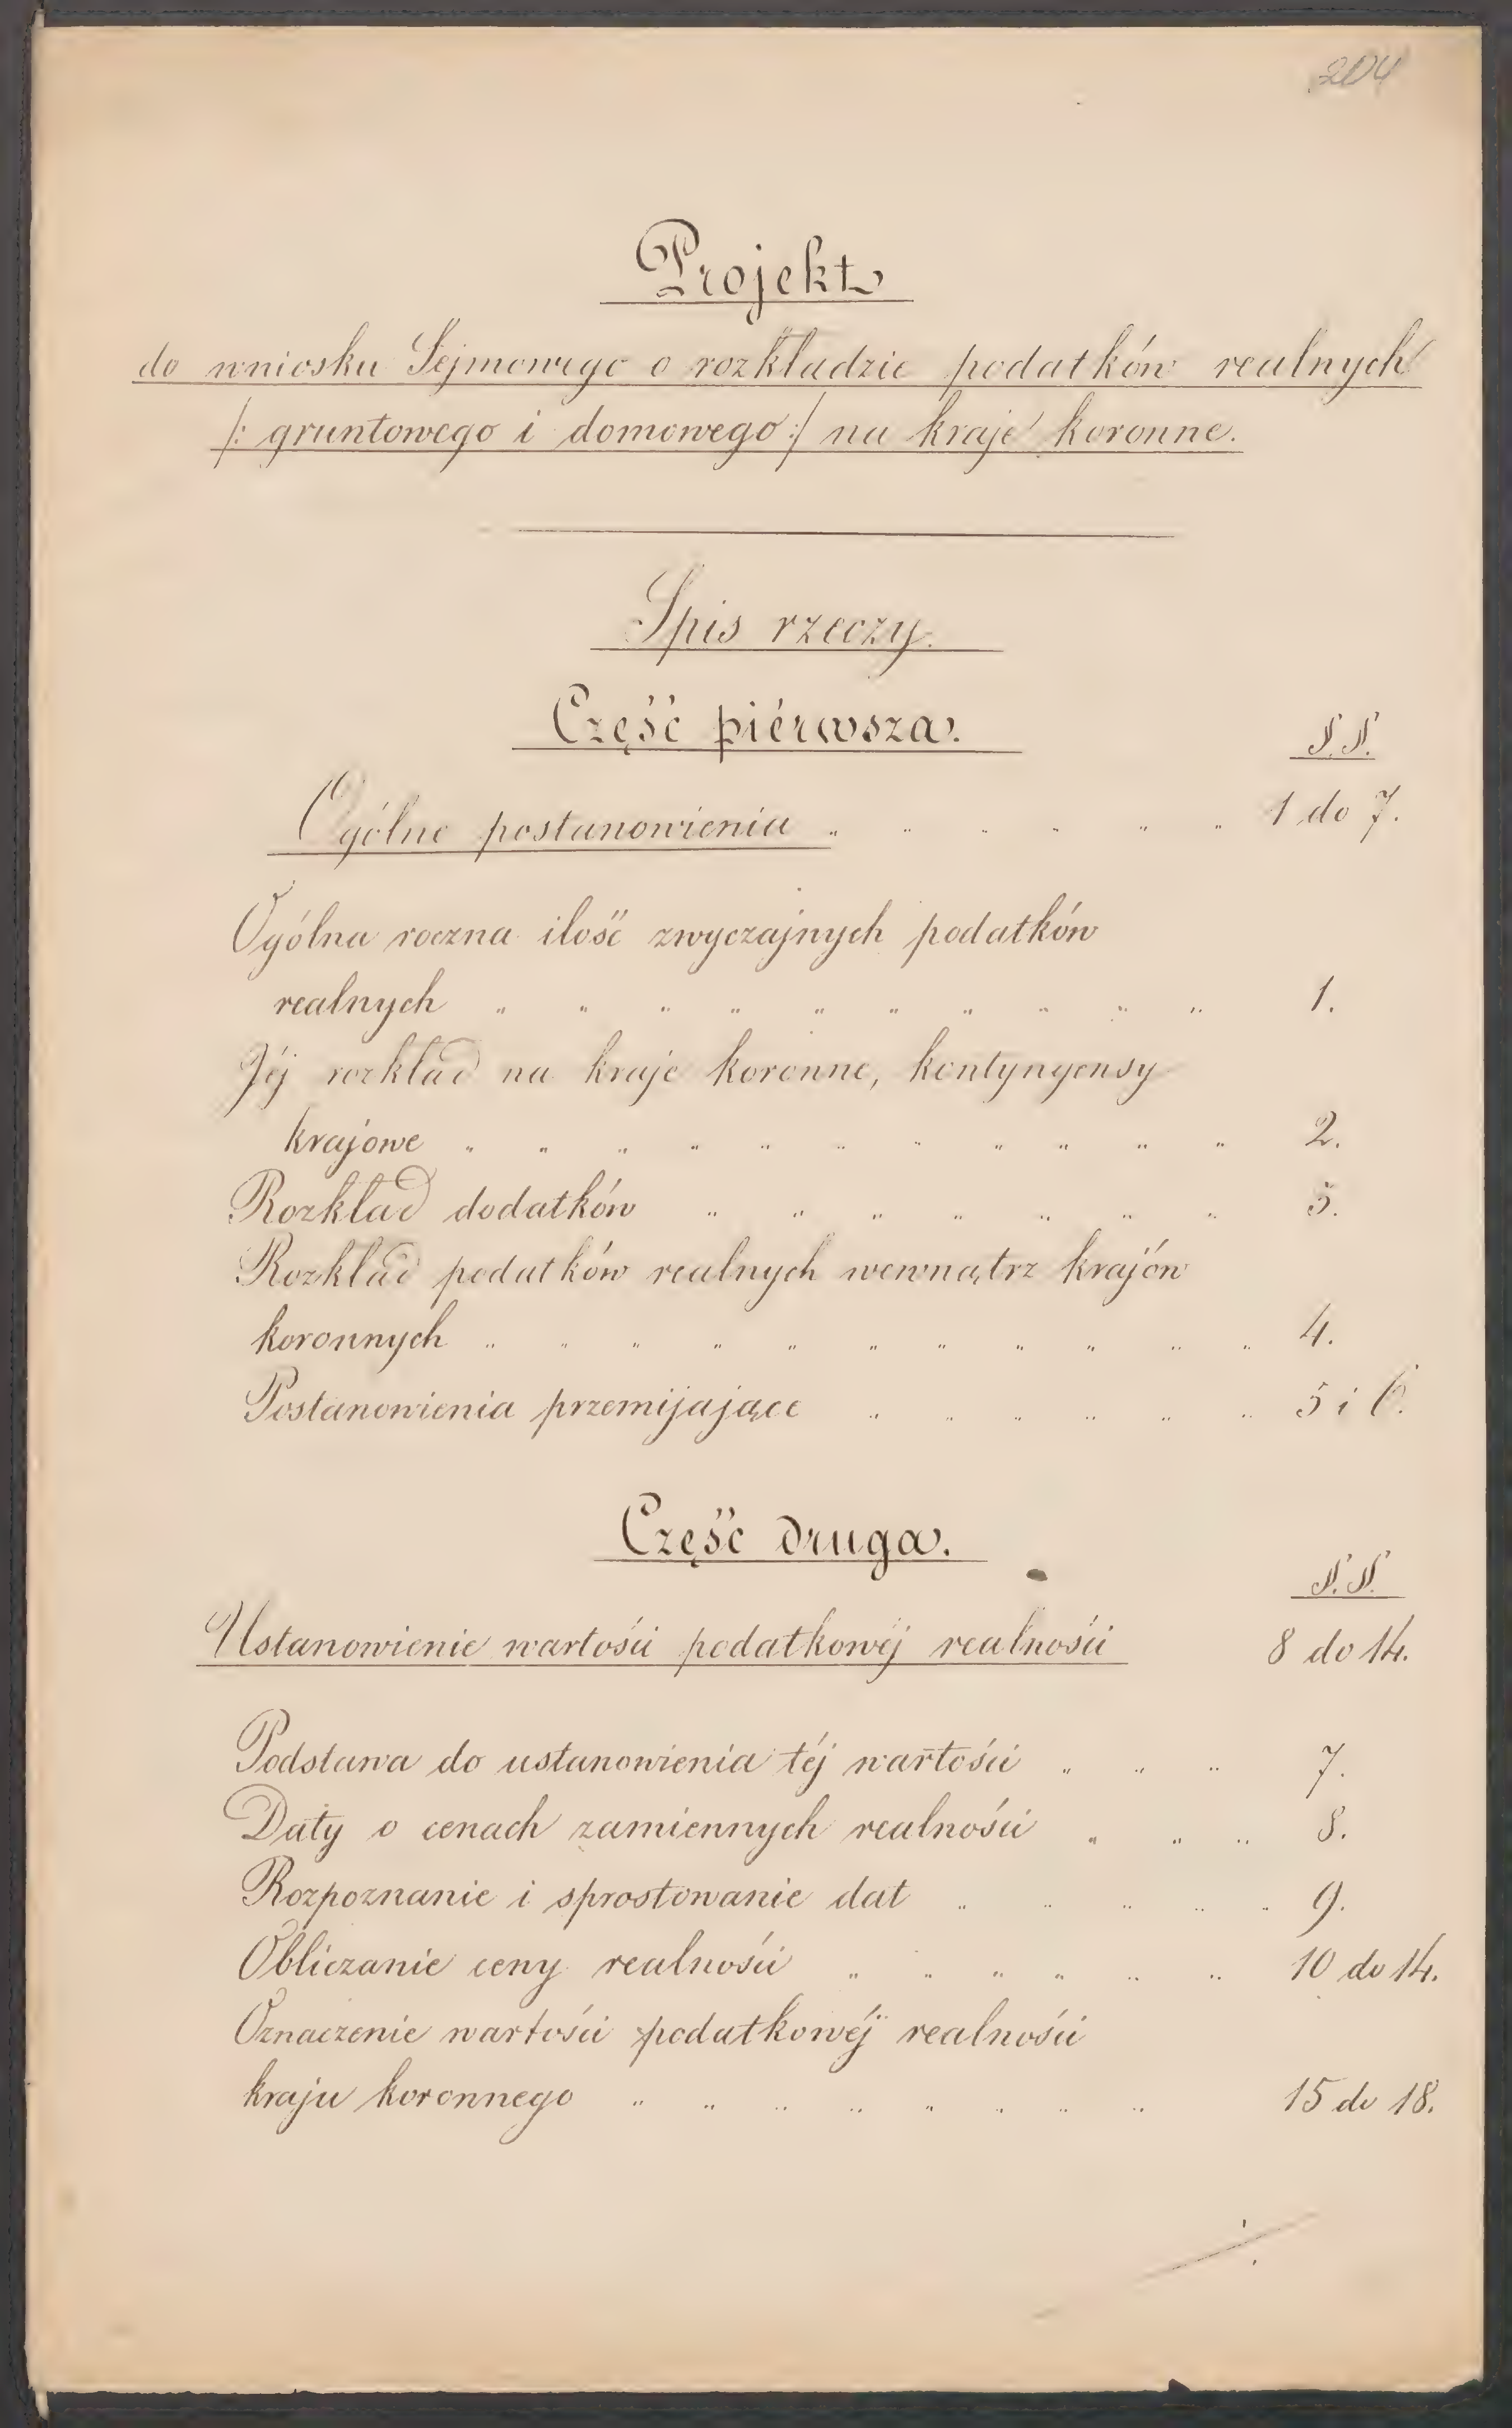 204
Projekt
do wniosku Sejmowego o rozkładzie podatków realnych
/: gruntowego i domowego :/ na kraje koronne.
Spis rzeczy.
Część piérwsza.
§. §.
Ogólne postanowienia „ „ „ „ „ „ 1 do 7.
Ogólna roczna ilość zwyczajnych podatków
realnych „ „ „ „ „ „ „ „ „ „ 1.
Jéj rozkład na kraje koronne, kontyngensy
krajowe „ „ „ „ „ „ „ „ „ „ „ 2.
Rozkład dodatków „ „ „ „ „ „ „ 3.
Rozkład podatków realnych wewnątrz krajów
koronnych „ „ „ „ „ „ „ „ „ „ „ 4.
Postanowienia przemijające „ „ „ „ „ „ 5 i 6.
Część druga.
§. §.
Ustanowienie wartości podatkowéj realności 8 do 14.
Podstawa do ustanowienia téj wartości „ „ „ 7.
Daty o cenach zamiennych realności „ „ „ 8.
Rozpoznanie i sprostowanie dat „ „ „ „ „ 9.
Obliczanie ceny realności „ „ „ „ „ „ 10 do 14.
Oznaczenie wartości podatkowéj realności
kraju koronnego „ „ „ „ „ „ „ „ 15 do 18.
./.